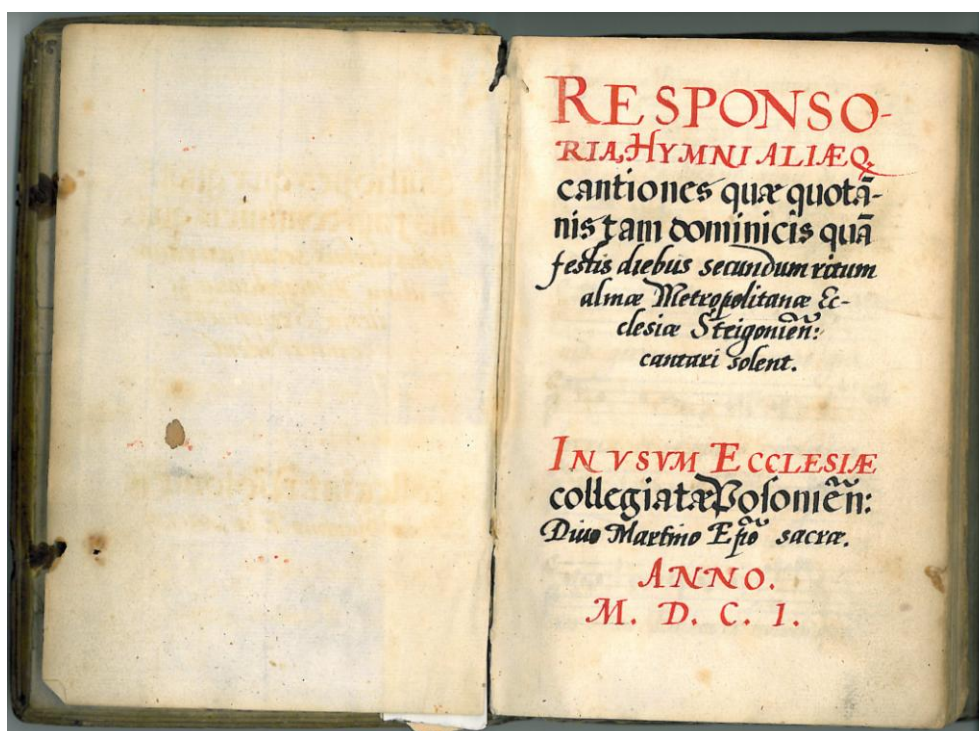 RESPONSO-
RIA, HYMNI ALIÆQ
cantiones quæ quotā-
nis tam dominicis quā
festis diebus secundum ritum
almæ Metropolitanæ Ec-
clesiæ Strigoniēn:
cantari solent.
IN VSVM ECCLESIÆ
collegiatæ Posoniēn:
Diuo Martino Ep̄o sacræ.
ANNO.
M. D. C. I.